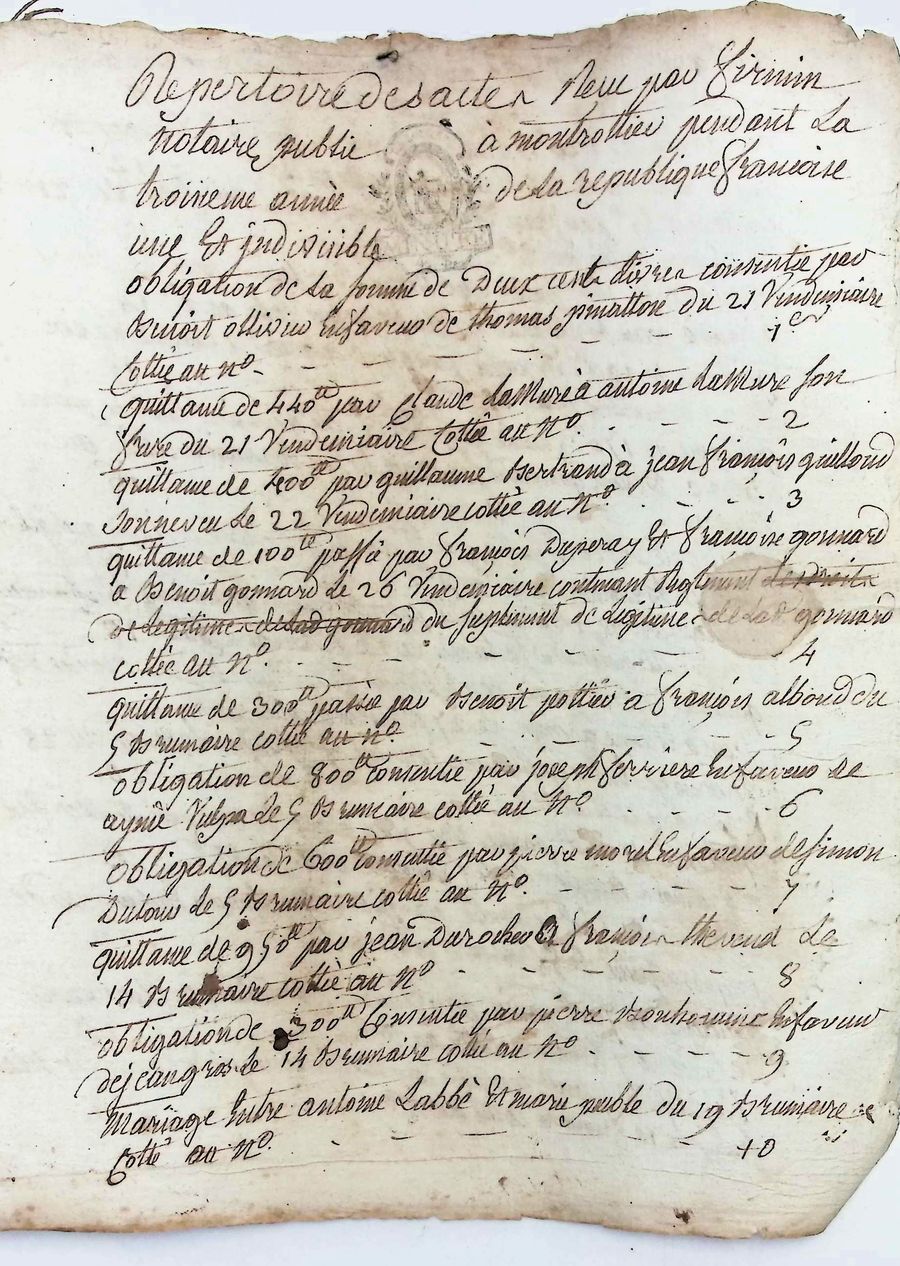 Repertoire des actes Recu par Firmin
Notaire public à montrottier pendant La
troisieme année de la republique francoise
une Et jndivisible
obligation de La somme de Deux cents livres consentie par
Benoist ollivier En faveur de thomas du 21 Vendemiaire
Cottée au No. - - - - - 1
quittance de 440tt par Claude LaMure à antoine LaMure son
frere du 21 Vendemiaire Cottée au No. - - - 2
quittance de 400tt par guillaume Bertrand à jean françois guilloud
son neveu Le 22 Vendemiaire cottée au No - - - 3
quittance de 100tt passée par françois Duperay Et francoise gonnard
a Benoit gonnard Le 26 Vendemiaire contenant Reglement de droits
de Legitimes de Lad gonnard du suplement de Legitimes de Lad gonnard
cottée au No. - - - - - 4
quittance de 300tt passée par Benoit pottier a françois alboud du
5 Brumaire cottée au No. - - - 5
obligation de 800tt consentie par joseph ferriere En faveur de
aymé Vulpa Le 5 Brumaire cottée au No - - - 6
obligation de 600tt consentie par pierre morel En faveur de simon
Dutour Le 5 Brumaire cottée au No. - - - 7
quittance de 950tt par jean Durocher a françois thevend Le
14 Brumaire cottée au No - - - 8
obligation de 300tt Consentie par pierre Bonhomme En faveur
de jean gros Le 14 Brumaire cottée au No - - - 9
Mariage Entre antoine Labbé Et marie peuble du 19 Brumaire
Cotté au No. - - - - - 10